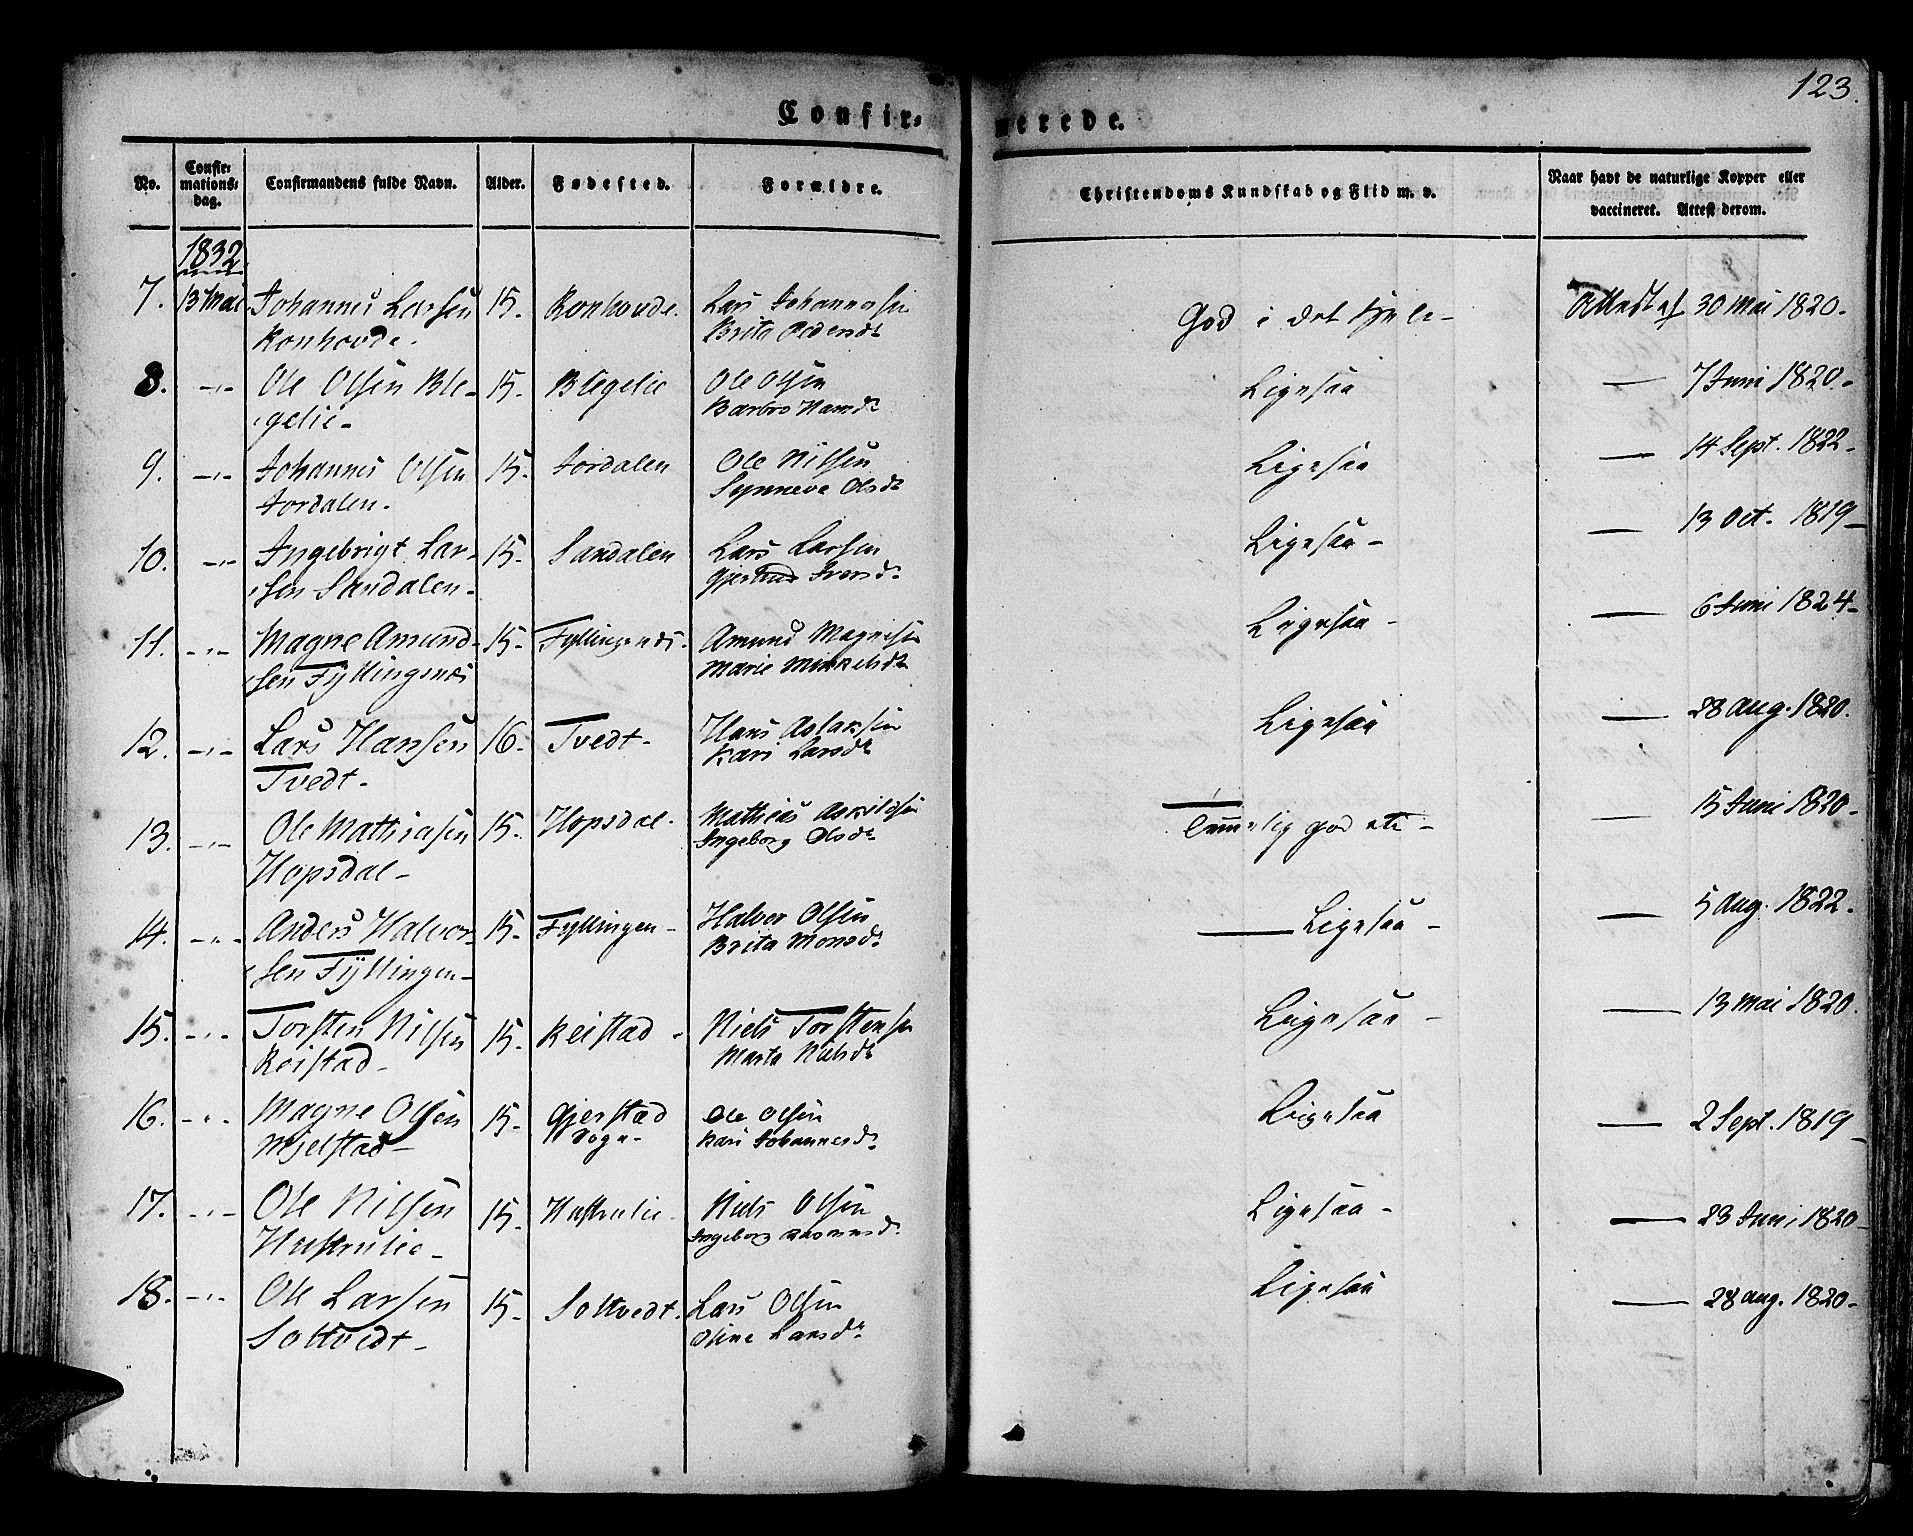 123.
Confirmerede.
No. Confirmations-dag. Confirmandens fulde Navn. Alder. Fødested. Forældre. Christendoms Kundskab og Flid m. v. Naar havt de naturlige Kopper eller vaccineret. Attest derom.
1832
7. 13 Mai Johannes Larsen 15. Ronhovde. Lars Johannesen God i det hele - Attest af 30 Mai 1820.
Ronhovde. Brita
8. -"- Ole Olsen Ble- 15. Blegelie Ole Olsen Ligesaa — 7 Juni 1820.
gelie - Barbro Hansdr
9. -"- Johannes Olsen 15. Jordalen Ole Nilsen Ligesaa — 14 Sept. 1822.
Jordalen. Synneva Olsdr
10. -"- Ingebrigt Lar- 15. Sandalen Lars Larsen Ligesaa - — 13 Oct. 1819
sen Sandalen. Gjertrud Iversdr
11. -"- Magne Amund- 15. Fyllingsnæs. Amund Magnesen Ligesaa - — 6 Juni 1824
sen Fyllingsnæs Marie Mikkelsdr
12. -"- Lars Hansen 16. Tvedt. Hans Aslaksen Ligesaa — 28 Aug. 1820.
Tvedt. Kari Larsdr
13. -"- Ole Mathiasen 15. Hopsdal. Mathias Askildsen Temmelig god etc - — 15 Juni 1820.
Hopsdal - Ingeborg Olsdr
14. -"- Anders Halvor- 15. Fyllingen - Halvor Olsen — Ligesaa - — 5 Aug. 1822.
sen Fyllingen - Brita Monsdr
15. -"- Torsten Nilsen 15. Reistad - Niels Torstensen Ligesaa - — 13 Mai 1820.
Reistad - Marta Nilsdr
16. -"- Magne Olsen 15. Gjerstad Ole Olsen Ligesaa — 2 Sept. 1819
Mjelstad - Sogn - Kari Johannesdr
17. -"- Ole Nilsen 15. Hustrulie - Niels Olsen Ligesaa - — 23 Juni 1820
Hustrulie - Ingeborg Rasmusdr
18. -"- Ole Larsen 15. Soltvedt. Lars Olsen Ligesaa — 28 Aug. 1820
Soltvedt - Larsdr